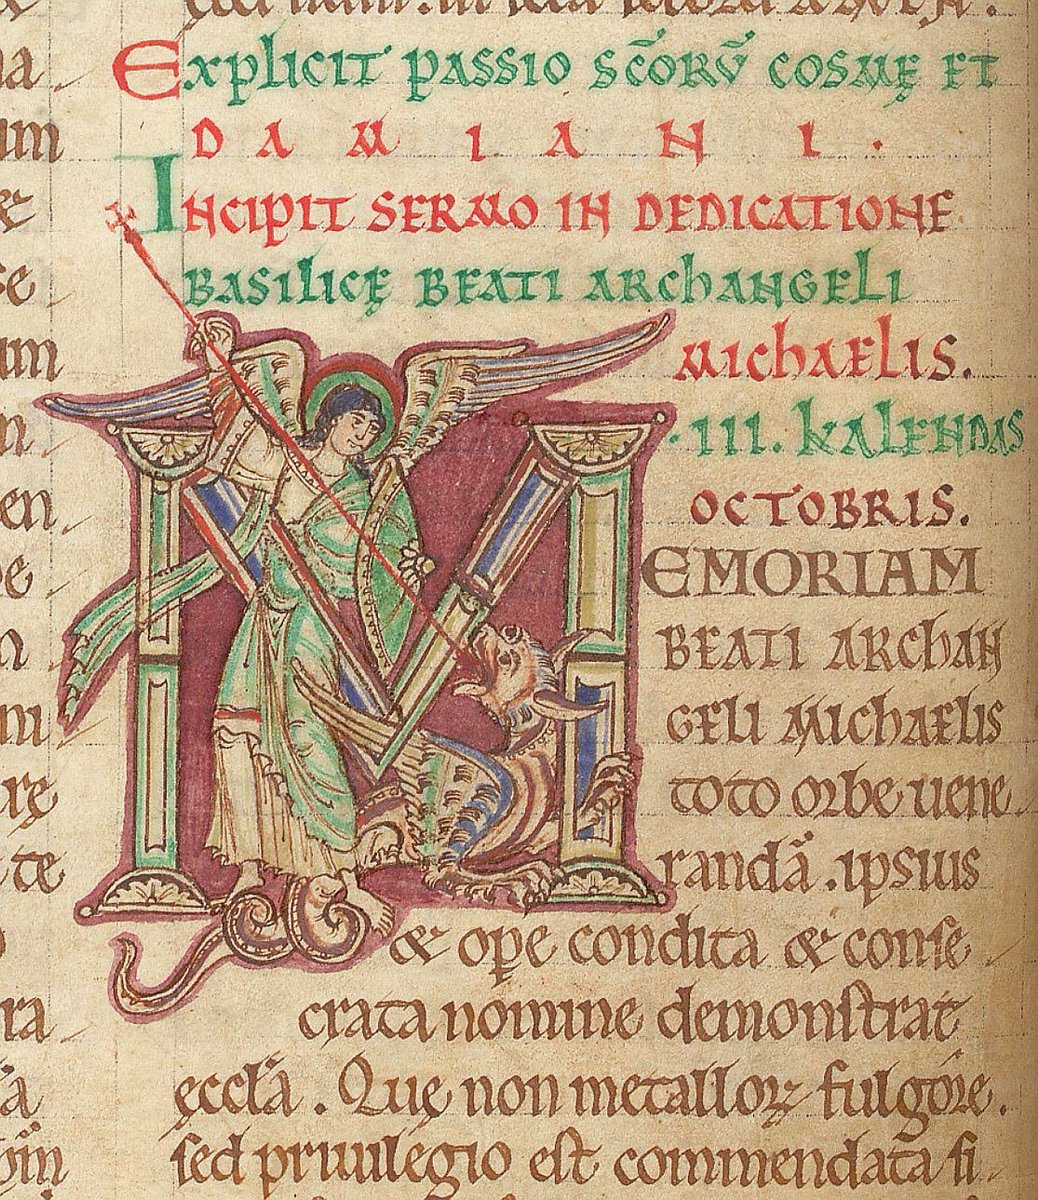 Explicit passio sc̄orū cosmę et
DAMIANI.
Incipit sermo in dedicatione
basilicę beati archangeli
michaelis.
.III. kalendas
octobris.
MEMORIAM
beati archan
geli michaelis
toto orbe uene
randā. ipsius
& ope condita & conſe
crata nomine demonſtrat
ęccła. Quę non metalloꝝ fulgore.
ſed priuilegio eſt commendata ſi